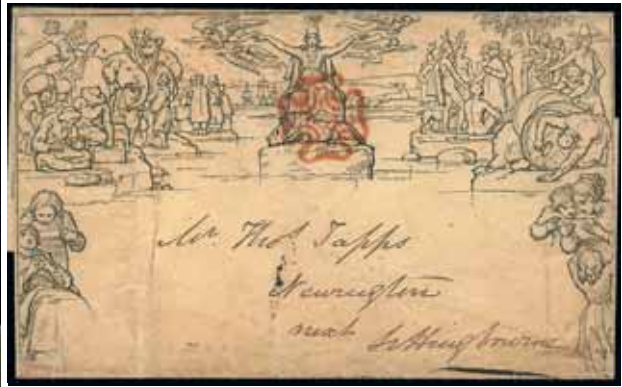 Mr. Thos. Tapps
Newington
next Sittingbourne